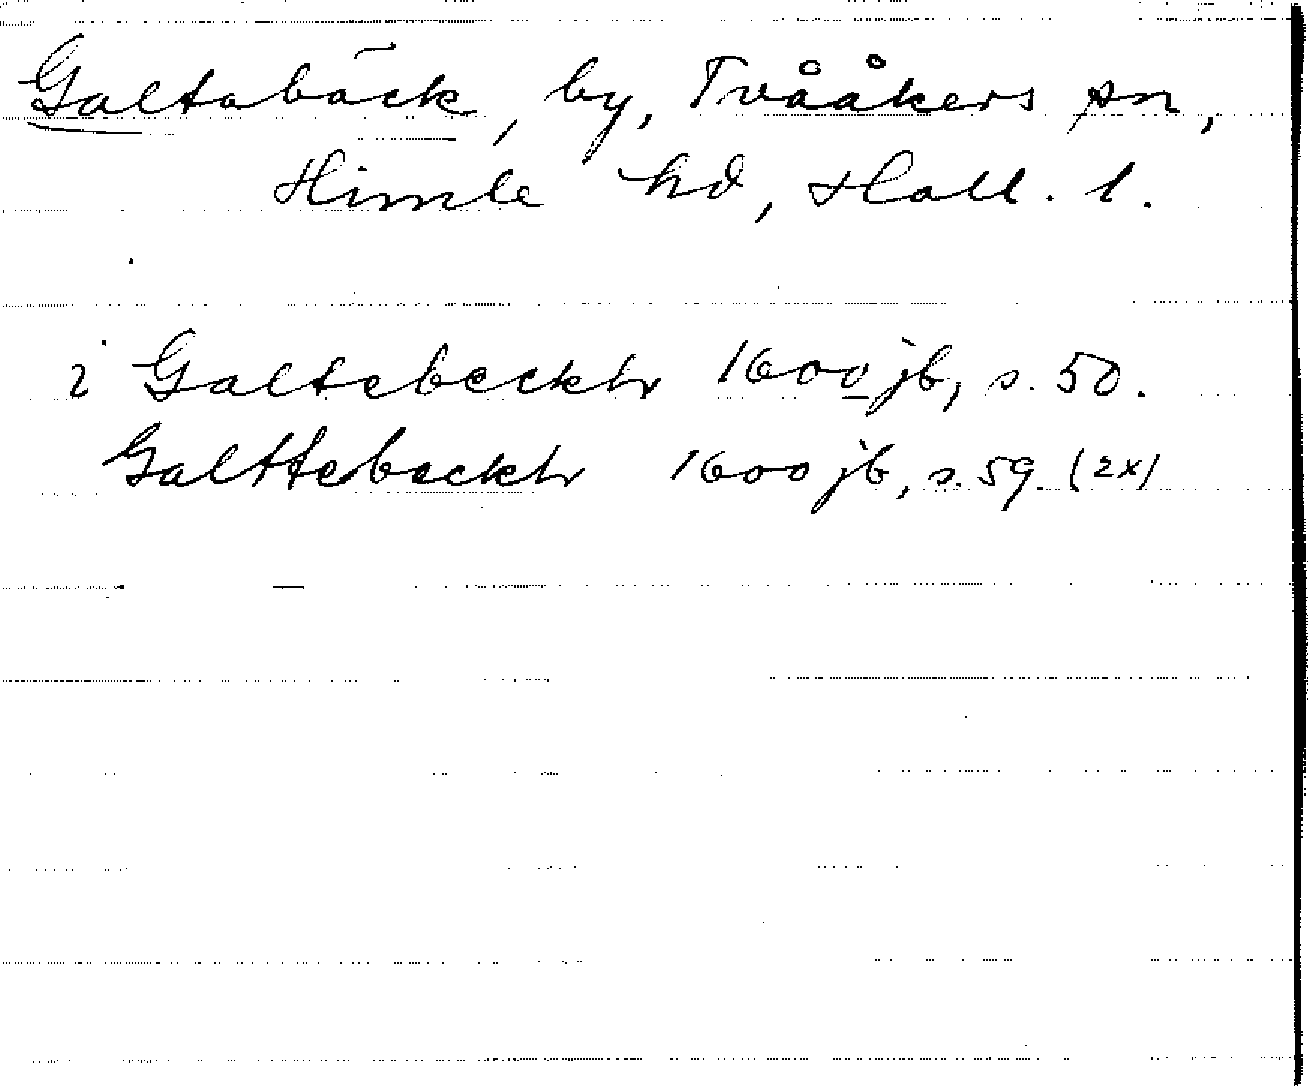 Galtabäck, by, Tvååkers sn,
Himle hd, Hall. l.
i Galtebeckh 1600 jb, s. 50.
Galttebeckh 1600 jb, s. 59. (2x)